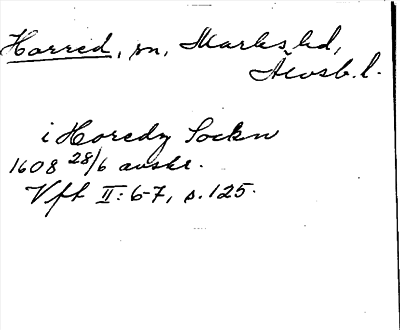 Horred, sn, Marks hd,
Älvsb. l.
i Horedz Sockn
1608 28/6 avskr.
Vft II: 6-7, s. 125.